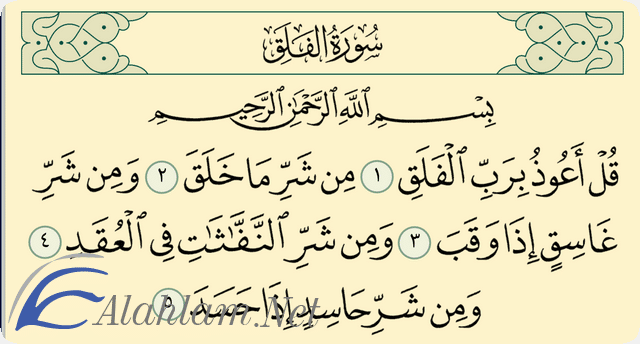 سُورَةُ الفَلَقِ
بِسْمِ ٱللَّهِ ٱلرَّحْمَٰنِ ٱلرَّحِيمِ
قُلْ أَعُوذُ بِرَبِّ ٱلْفَلَقِ ١ مِن شَرِّ مَا خَلَقَ ٢ وَمِن شَرِّ
غَاسِقٍ إِذَا وَقَبَ ٣ وَمِن شَرِّ ٱلنَّفَّٰثَٰتِ فِى ٱلْعُقَدِ ٤
وَمِن شَرِّ حَاسِدٍ إِذَا حَسَدَ ٥
Alahlam.Net